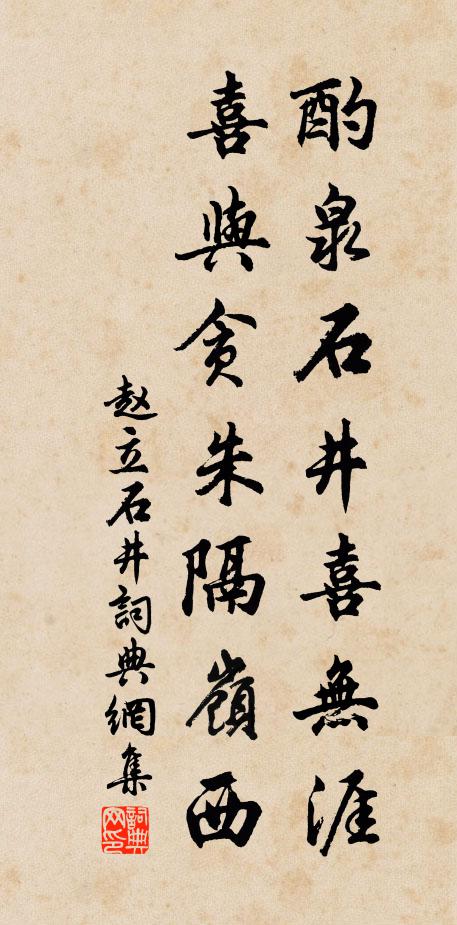 酌泉石井喜無涯
喜與貪朱隔嶺西
赵立石井詞典網集
詞典网印